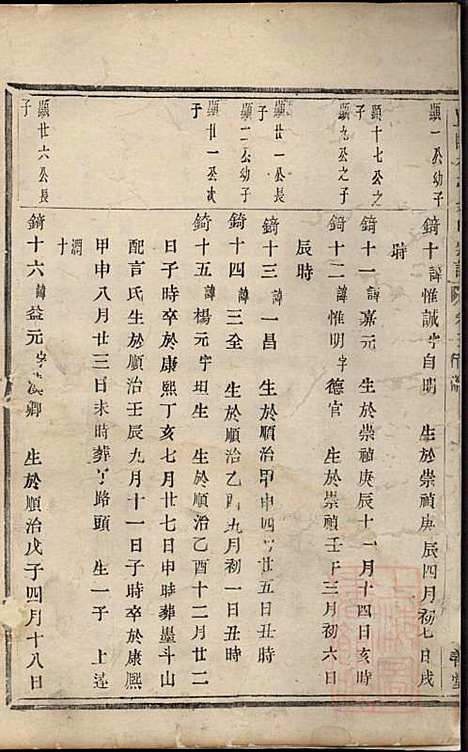 顯一公幼子
錡十 諱 惟誠 字 自明 生於崇禎庚辰四月初七日戌
時
顯十七公之
子
錡十一 諱 嘉元 生於崇禎庚辰十一月十四日亥時
顯九公之子
錡十二 諱 惟明 字 德官 生於崇禎壬午三月初六日
辰時
顯廿一公長
子
錡十三 諱 一昌 生於順治甲申四月廿五日丑時
顯二公幼子
錡十四 諱 三全 生於順治乙酉九月初一日丑時
顯廿一公次
子
錡十五 諱 楊元 字 坦生 生於順治乙酉十二月廿二
日子時卒於康熙丁亥七月廿七日申時葬墨斗山
配言氏生於順治壬辰九月十一日子時卒於康熙
甲申八月廿三日未時葬丫路頭 生一子 上達
潤十
顯廿六公長
子
錡十六 諱 益元 字 漢卿 生於順治戊子四月十八日